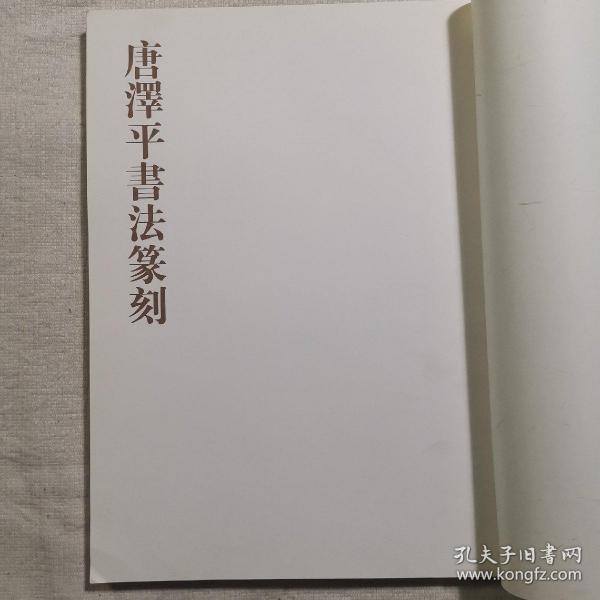 唐澤平書法篆刻
孔夫子旧書网
www.kongfz.com